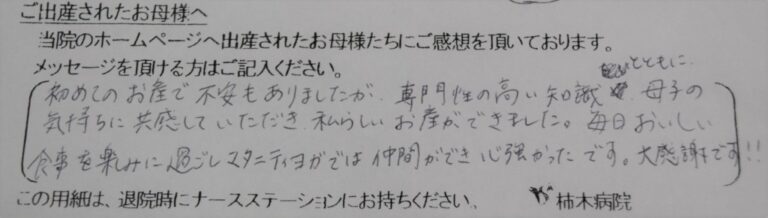 ご出産されたお母様へ
当院のホームページへ出産されたお母様たちにご感想を頂いております。
メッセージを頂ける方はご記入ください。
とともに
初めてのお産で不安もありましたが、専門性の高い知識 母子の
気持ちに共感していただき 私らしいお産ができました。毎日おいしい
食事を楽しみに過ごしマタニティヨガでは仲間ができ心強かったです。大感謝です!!
この用紙は、退院時にナースステーションにお持ちください。 柿木病院